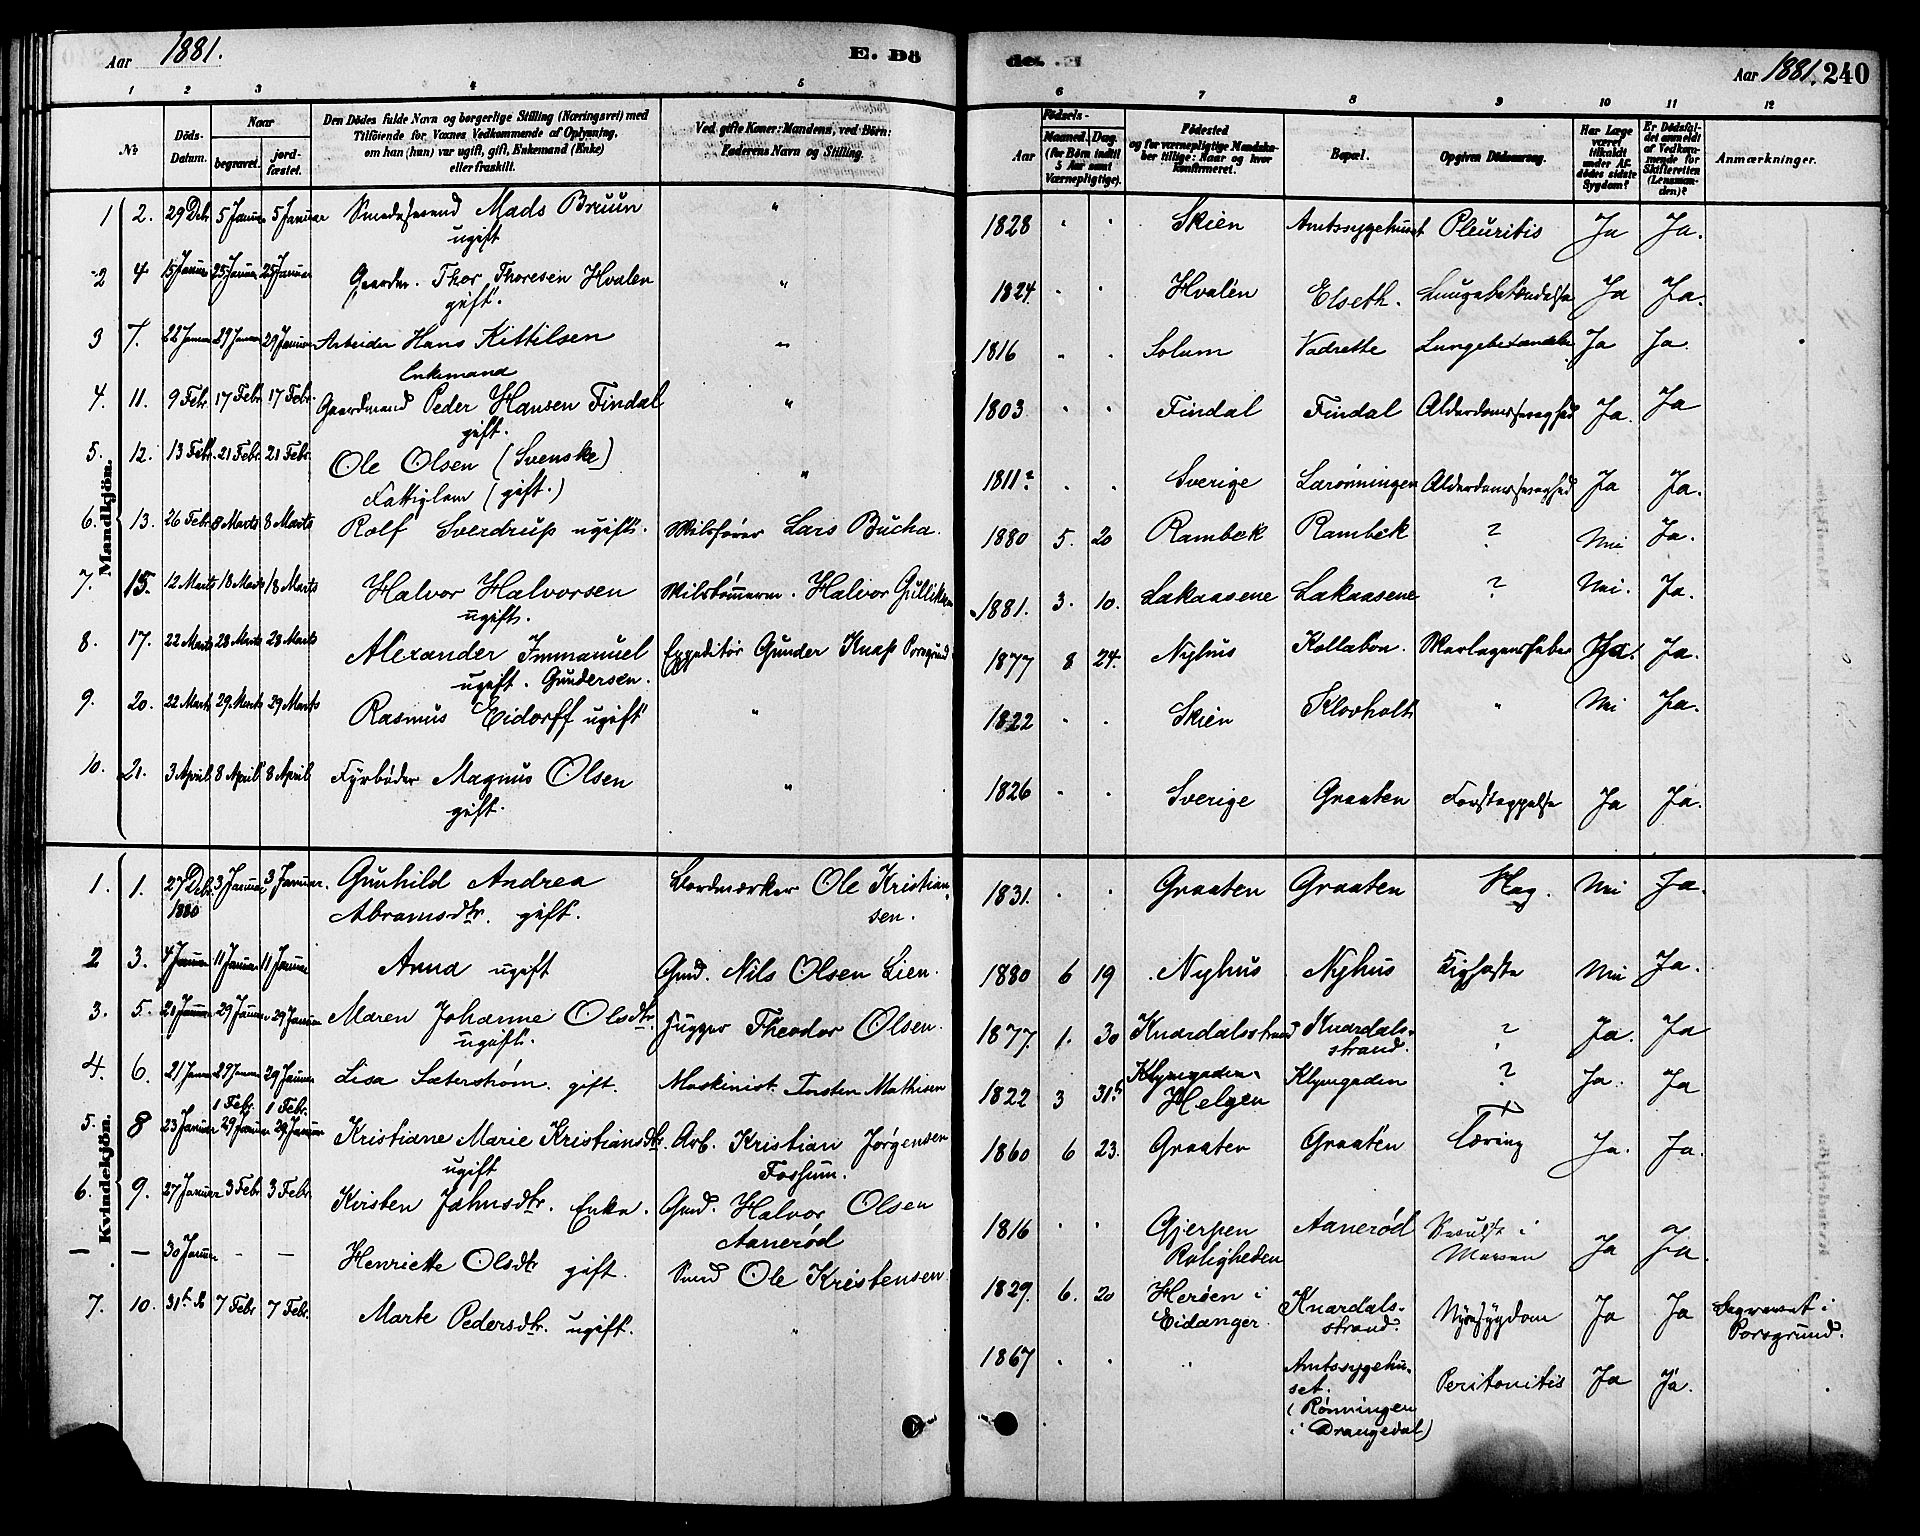 Aar 1881.
E. Dö
de. E
Aar 1881. 240
1 2 3 4 5 6 7 8 9 10 11 12
No.
Döds-Datum.
Naar
begravet.
jordfæstet.
Den Dödes fulde Navn og borgerlige Stilling (Næringsvei) med
Tilföiende for Voxnes Vedkommende af Oplysning,
om han (hun) var ugift, gift, Enkemand (Enke)
eller fraskilt.
Ved gifte Koner: Mandens, ved Börn:
Faderens Navn og Stilling.
Födsels-
Aar
Maaned. Dag.
(for Börn indtil
5 Aar samt
Værnepligtige).
Födested
og for værnepligtige Mandska-
ber tillige: Naar og hvor
konfirmeret.
Bopæl.
Opgiven Dödsaarsag.
Har Læge
været
tilkaldt
under Af-
dödes sidste
Sygdom?
Er Dödsfal-
det anmeldt
af Vedkom-
mende for
Skifteretten
(Lensman-
den)?
Anmærkninger.
Mandkjön.
1 2. 29 Dcb 5 Januar 5 Januar Smedesvend Mads Bruun " 1828 " " Skien Amtssygehuset Pleuritis Ja Ja.
ugift
2 4. 15 Januar 25 Januar 25 Januar Gaardm. Thor Thoresen Hvalen " 1824 " " Hvalén Elseth. Lungebetændelse Ja Ja.
gift.
3 7. 22 Januar 29 Januar 29 Januar Arbeider Hans Kittilsen " 1816 " " Solum Vadrette Lungebetændelse Ja Ja.
Enkemand
4. 11. 9 Febr. 17 Febr. 17 Febr. Gaardmand Peder Hansen Findal " 1803 " " Findal Findal Alderdomssvaghed Ja. Ja
gift.
5. 12. 13 Febr. 21 Febr. 21 Febr. Ole Olsen (Svenske) " 1811? " " Sverige Larønningen Alderdomssvaghed Ja Ja.
Fattiglem (gift.)
6. 13. 26 Febr. 8 Marts 8 Marts Rolf Sverdrup ugift. Lars Bucha. 1880 5. 20 Rambek Rambek ? Nei Ja.
7. 15. 12 Marts 18 Marts 18 Marts Halvor Halvorsen Halvor Gulliksen 1881. 3. 10. Lakaasene Lakaasene ? Nei. Ja.
ugift.
8. 17. 22 Marts 28 Marts 28 Marts Alexander Immanuel Expeditør Gunder Knap Porsgrund 1877 8 24. Nyhus Kollabon. Skarlagensfeber Ja. Ja.
ugift. Gundersen.
9. 20. 22 Marts 29 Marts 29 Marts Rasmus Eidorff ugift " 1822 " " Skien Klovholt " Nei Ja.
10. 21. 3 April 8 April 8 April Fyrbøder Magnus Olsen " 1826 " " Sverige Graaten Forstoppelse Ja Ja.
gift.
Kvindekjön.
1. 1. 27 Debr. 3 Januar 3 Januar. Gunhild Andrea Bordmærker Ole Kristian- 1831. " " Graaten Graaten Slag. Nei Ja.
1880 Abramsdtr. gift. sen.
2 3. 4 Januar 11 Januar 11 Januar Anna ugift Gmd. Nils Olsen Lien. 1880 6 19 Nyhus Nyhus Kighoste Nei Ja.
3. 5. 20 Januar 29 Januar 29 Januar Maren Johanne Olsdtr. Theodor Olsen. 1877. 1. 30 Knardalsstrand Knardals- ? Ja. Ja
ugift. strand.
4. 6. 21 Januar 29 Januar 29 Januar Lisa Sæterstrøm. gift. Maskinist. Torsten Mathisen 1822 3 31te Klyvegaden. Klyvegaden ? Ja. Ja
Helgen
1 Febr. 1 Febr.
5. 8 23 Januar 29 Januar 29 Januar Kristiane Marie Kristiansdtr. Arb. Kristian Jørgensen 1860 6 23. Graaten Graaten Tæring Ja. Ja.
ugift Fossum.
6. 9. 27 Januar 3 Febr. 3 Febr. Kirsten Jahnsdtr. Enke. Gmd. Halvor Olsen 1816 " " Gjerpen Aanerød Svulst i Ja Ja.
Aanerød Roligheden Maven
— — 30 Januar – – Henriette Olsdtr gift. Smed Ole Kristensen 1829. 6. 20 Herøen i Knardals- Nyresygdom Ja Ja Begravet i
Eidanger. strand. Porsgrund.
7. 10. 31te do 7 Febr 7 Febr. Marte Pedersdtr. ugift. " 1867 " " " Amtssygehu- Peritonitis Ja Ja.
set.
(Rønningen
i Drangedal)